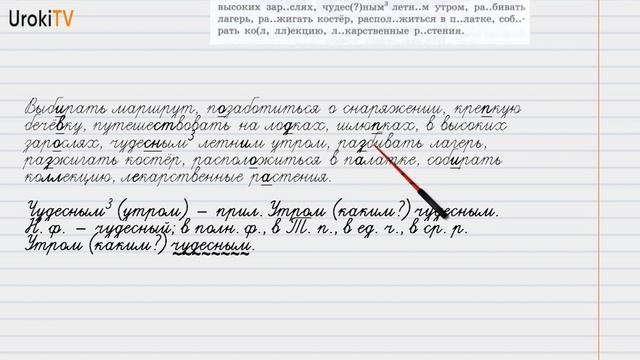 UrokiTV
высоких зар..слях, чудес(?)ным³ летн..м утром, ра..бивать
лагерь, ра..жигать костёр, распол..житься в п..латке, соб..-
рать ко(л, лл)екцию, л..карственные р..стения.
Выбирать маршрут, позаботиться о снаряжении, крепкую
бечёвку, путешествовать на лодках, шлюпках, в высоких
зарослях, чудесным³ летним утром, разбивать лагерь,
разжигать костёр, расположиться в палатке, собирать
коллекцию, лекарственные растения.
Чудесным³ (утром) – прил. Утром (каким?) чудесным.
Н. ф. – чудесный; в полн. ф., в Т. п., в ед. ч., в ср. р.
Утром (каким?) чудесным.